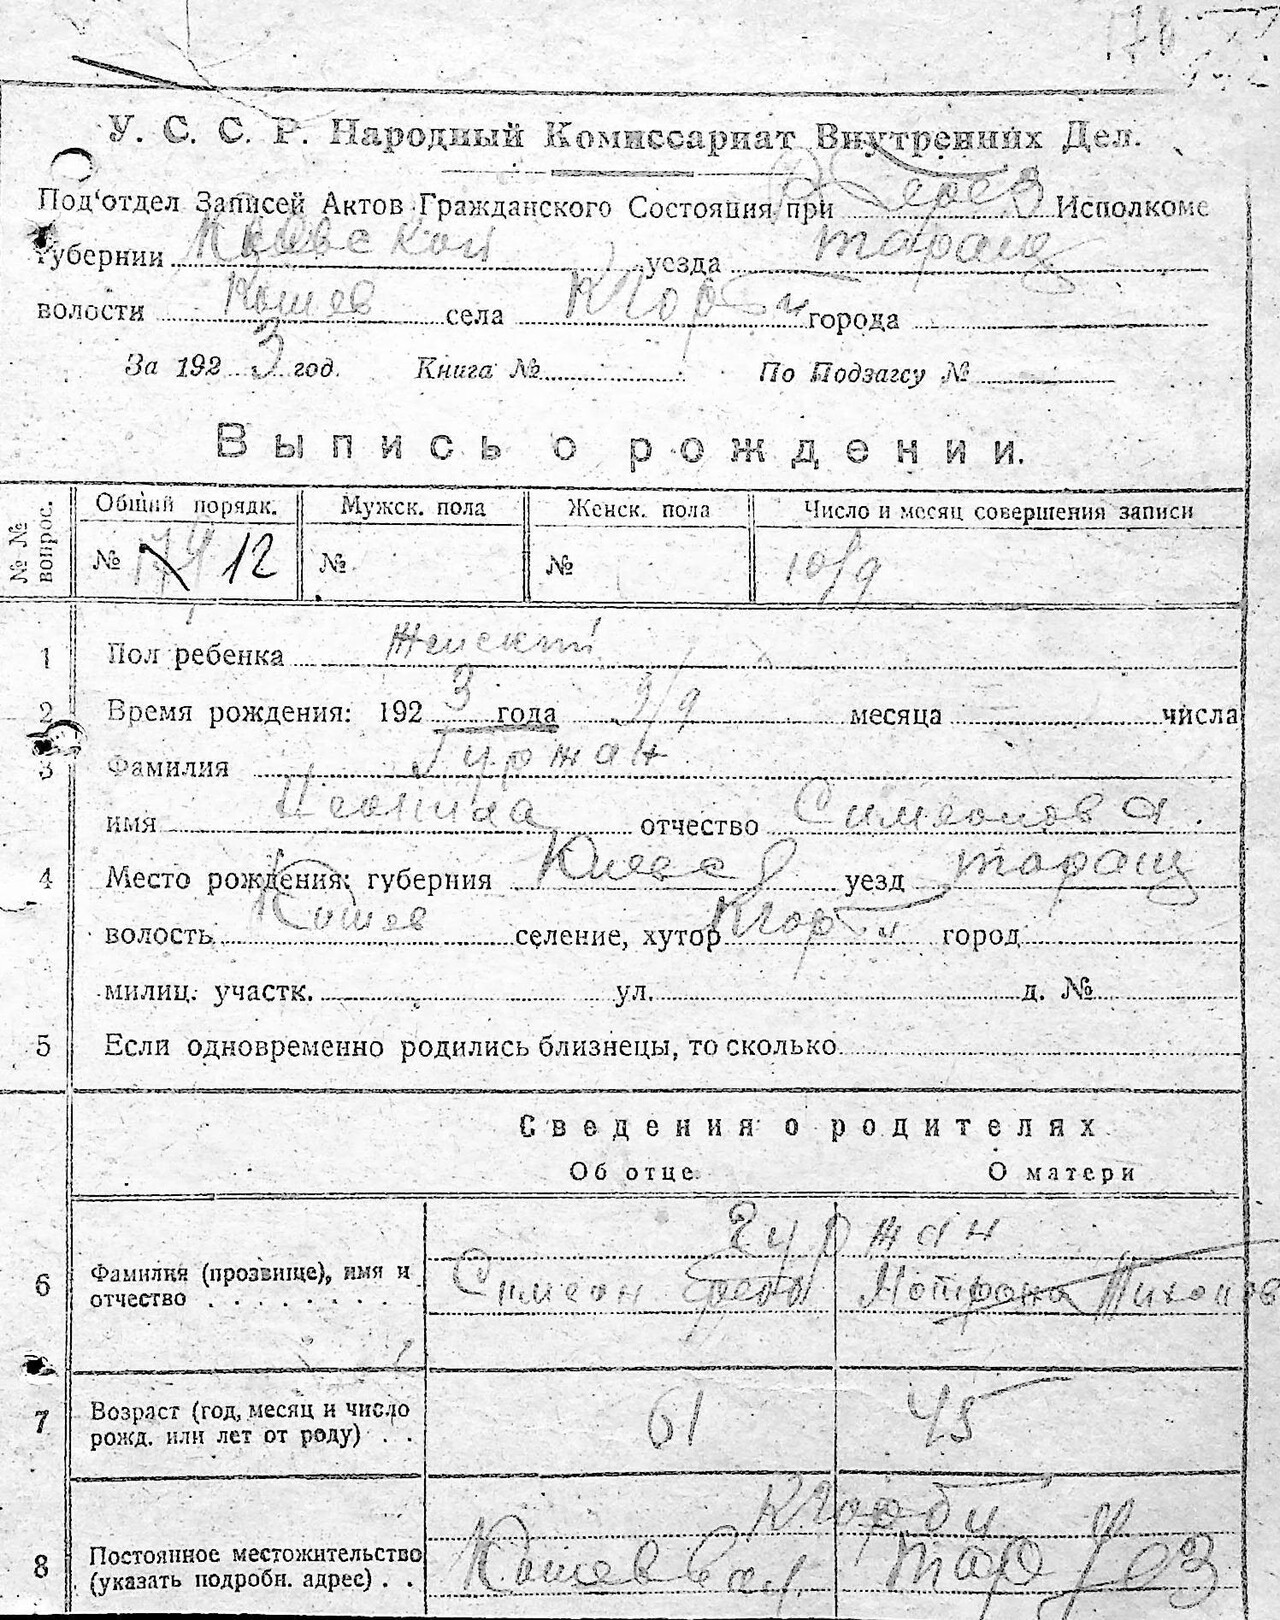 178
У. С. С. Р. Народный Комиссариат Внутренних Дел.
Под‘отдел Записей Актов Гражданского Состояния при Исполкоме
Губернии Киевской уезда таращ
волости Кошев села города
За 192 3 год. Книга № По Подзагсу №
Выпись о рождении.
№ № вопрос. Общий порядк. Мужск. пола Женск. пола Число и месяц совершения записи
№ 12 № № 10/9
1 Пол ребенка Женский
2 Время рождения: 192 3 года 9/9 месяца числа
3 Фамилия Гуржан
имя Неонила отчество Симеонова
4 Место рождения: губерния Киев уезд таращ
волость Кошев селение, хутор город
милиц. участк. ул. д. №
5 Если одновременно родились близнецы, то сколько
Сведения о родителях
Об отце О матери
Гуржан
6 Фамилия (прозвище), имя и отчество Симеон Мотрона Тихонов
7 Возраст (год, месяц и число рожд. или лет от роду) 61 45
8 Постоянное местожительство (указать подробн. адрес)